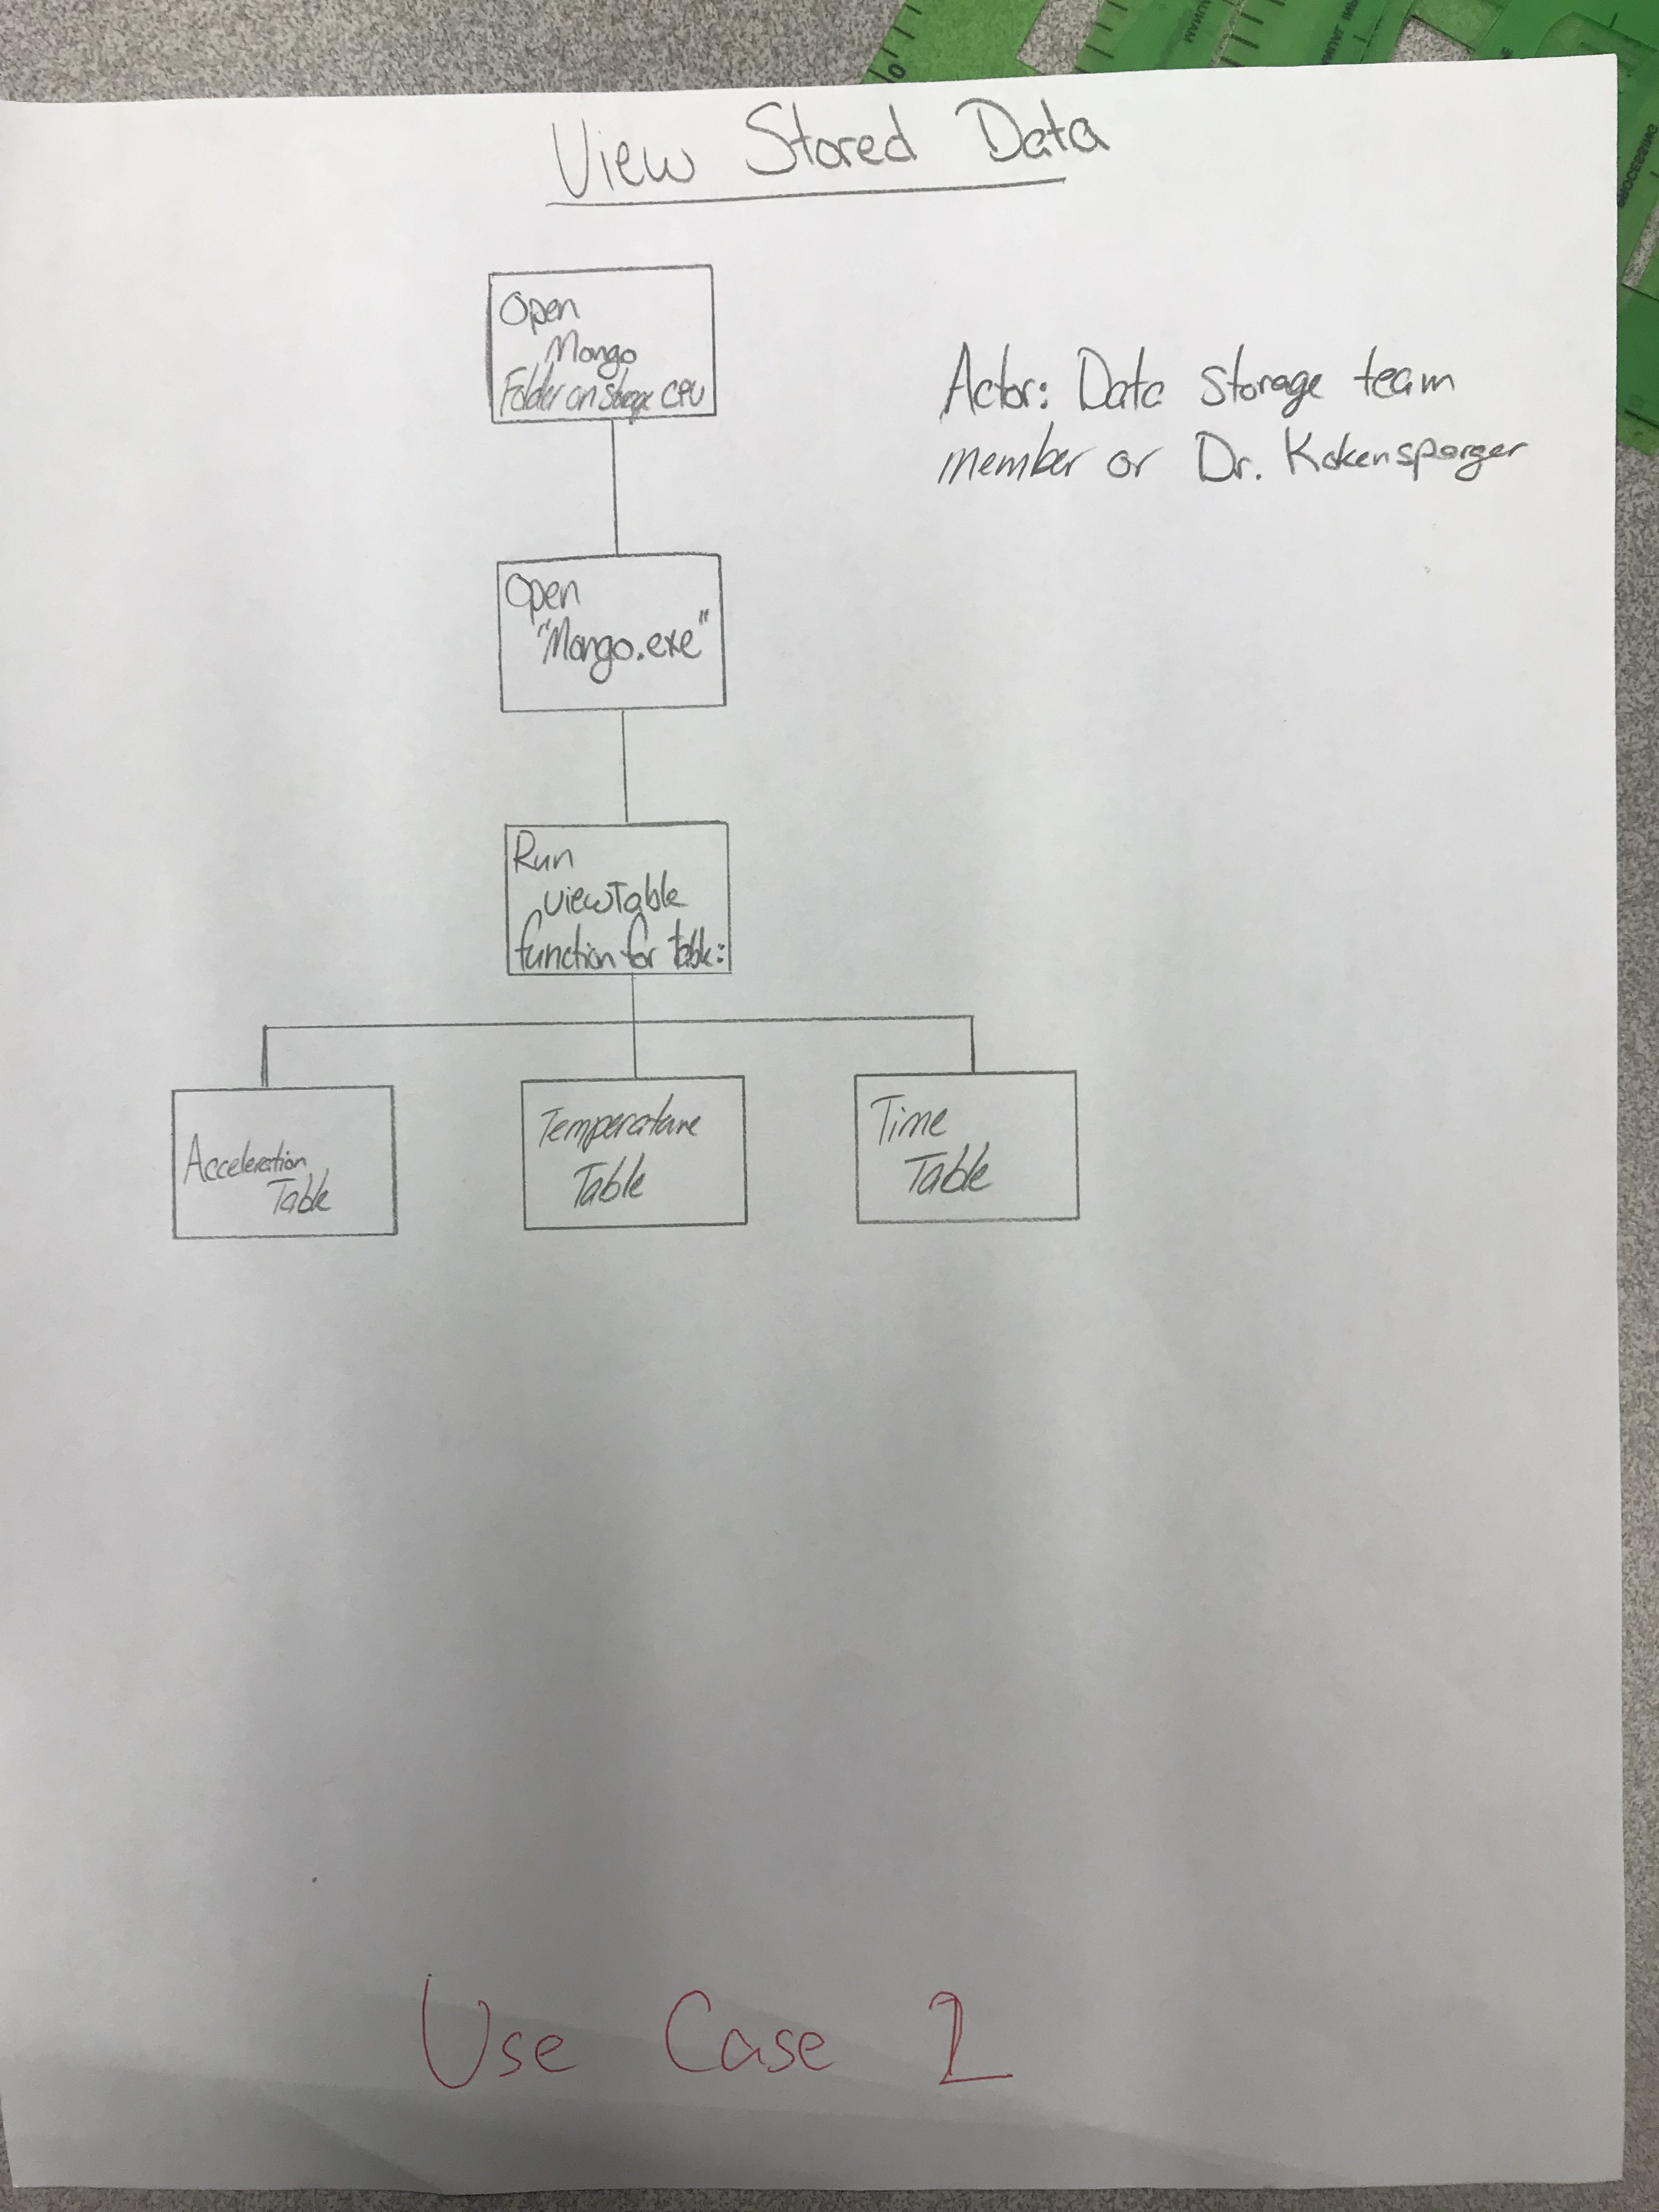 View Stored Data
Open
Mongo
Folder on Storage CPU
Actor: Data Storage team
member or Dr. Kokensparger
Open
"Mongo.exe"
Run
viewTable
function for table:
Acceleration
Table
Temperature
Table
Time
Table
Use Case 2
0
MANUAL
PROCESSING